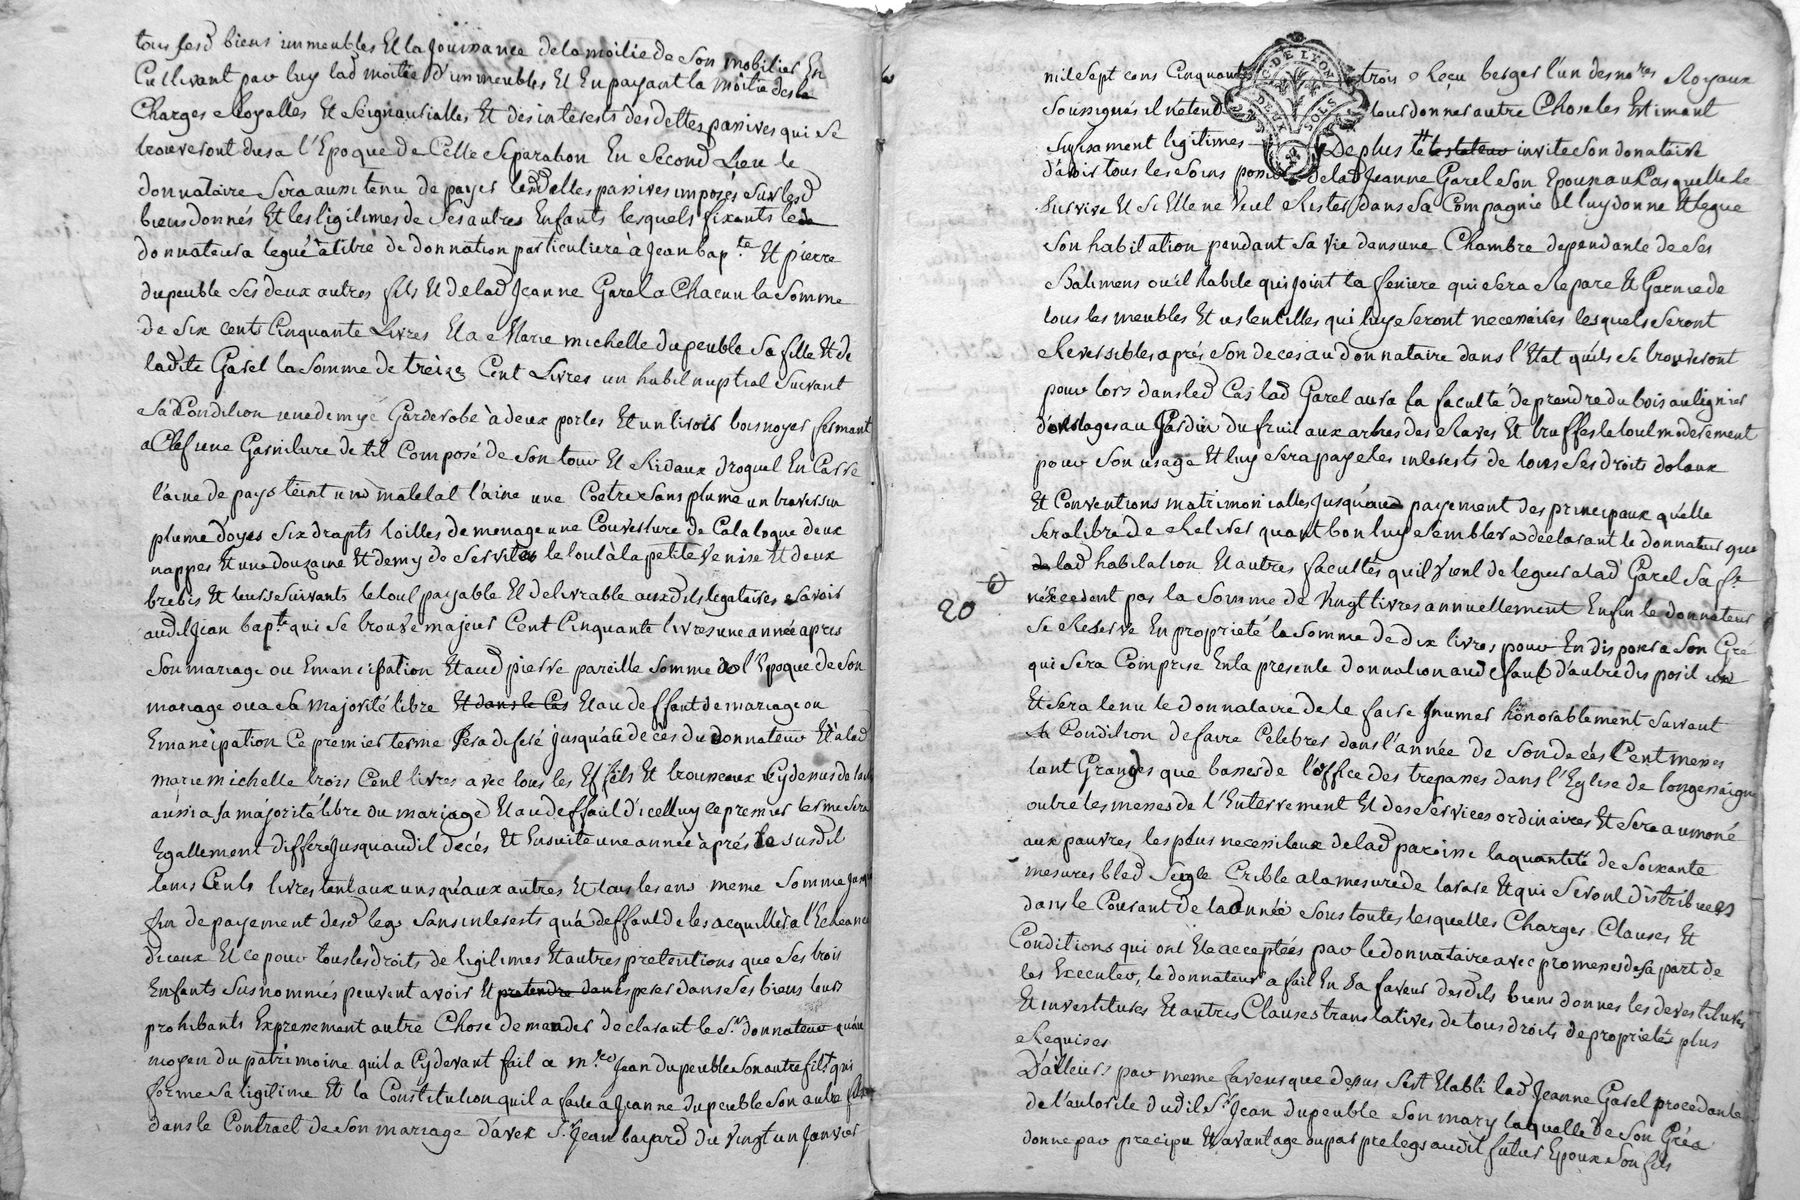 tous sesd biens immeubles Et la Jouissance de la moitié de Son mobilier En
Cultivant par luy lad moitié d'immeubles Et En payant la moitié desd
Charges Royalles Et Seignaurialles Et des interests des dettes passives qui Se
trouveront dues a l'Epoque de Cette Separation En Second Lieu le
donnataire Sera aussi tenu de payer lesd dettes passives imposés Sur lesd
biens donnés Et les ligitimes de Ses autres Enfants lesquels fixants led
donnateur a legué à titre de donnation particuliere à Jean bap.te Et pierre
dupeuble Ses deux autres fils Et de lad Jeanne Garel a Chacun la Somme
de Six cents Cinquante Livres Et a Marie michelle dupeuble Sa fille Et de
ladite Garel la Somme de treize Cent Livres un habit nuptial Suivant
Sa Condition une demye Garderobe à deux portes Et un tiroir bois noyer fermant
a Clef une Garniture de lit Composé de Son tour Et Ridaux droguet En Casse
l'aine de pays teint un matelat l'aine une Coetre Sans plume un traversin
plume d'oyes Six drapts toilles de menage une Couverture de Catalogne deux
nappes Et une douzaine Et demy de Servietes le tout à la petite Venise Et deux
brebis Et leurs Suivants le tout payable Et delivrable auxdits legataires Savoir
audit Jean bap.te qui Se trouve majeur Cent Cinquante livres une année apres
Son mariage ou Emancipation Et aud pierre pareille Somme à l'Epoque de Son
mariage ou a Sa majorité libre Et dans le Cas Et au deffaut de mariage ou
Emancipation Ce premier terme Sera diferé jusqu'au décès du donnateur Et à lad
marie michelle trois Cent livres avec tous les Effets Et trousseaux Cydessus
aussi a Sa majorité libre ou mariage Et au deffaut d'icelluy ce premier terme Sera
Egallement differé Jusquaudit décès Et Ensuite une année après le Susdit
Cents livres tant aux uns qu'aux autres Et tous les ans meme Somme Jusqu
fin de payement desd legs Sans interests qu'a deffaut de les acquitter à l'Echeance
diceux Et ce pour tous les droits de ligitimes Et autres pretentions que Ses trois
Enfants Susnommés peuvent avoir Et pretendre dans Ses biens leur
prohibants Expressement autre Chose demander declarant le S.r donnateur qu'au
moyen du patrimoine quil a Cydevant fait a m.re Jean dupeuble Son autre fils qui
forme Sa ligitime Et la Constitution quil a faite a Jeanne dupeuble Son autre fille
dans le Contract de Son mariage d'avec S.r Jean bayard du Vingt un Janvier
mil Sept cens Cinquante trois Reçu berger l'un des no.res Royaux
Soussignés il n'etend leur donner autre Chose les Estimant
Sufisament ligitimes
G. DE LYON
DEUX SOLS
De plus le testateur invite Son donataire
d'avoir tous les Soins de lad Jeanne Garel Son Epouse au Cas quelle le
Survive Et Si Elle ne Veut Rester dans Sa Compagnie Il luy donne Et legue
Son habitation pendant Sa vie dans une Chambre dependante de Ses
Bâtimens ou il habite qui joint la feniere qui Sera Reparé Et Garnie de
tous les meubles Et ustencilles qui luy Seront necessaires lesquels Seront
Reversibles aprés Son deces au donnataire dans l'Etat qu'ils Se trouveront
pour lors dans led Cas lad Garel aura la faculté de prendre du bois au lignier
d'ortolages au Jardin du fruit aux arbres des Raves Et truffes le tout moderement
pour Son usage Et luy Sera payé les interests de tous Ses droits dotaux
Et Conventions matrimonialles Jusqu'au payement des principaux qu'elle
Sera libre de Retirer quant bon luy Semblera declarant le donnateur que
lad habitation Et autres facultés quil vient de leguer a lad Garel Sa f.e
20
n'excedent pas la Somme de Vingt livres annuellement Enfin le donnateur
Se Reserve En proprieté la Somme de dix livres pour En disposer a Son Gré
qui Sera Comprise En la presente donnation aud defaut d'autre disposit
Et Sera tenu le donnataire de le faire Inumer honorablement Suivant
Sa Condition de faire Celebrer dans l'année de Son decés Cent messes
tant Grandes que basses de l'office des trepassés dans l'Eglise de longessaigne
outre les messes de l'Enterrement Et des Services ordinaires Et Sera aumoné
aux pauvres les plus necessiteux de lad paroisse la quantité de Soixante
mesures bled Seigle Crible a la mesure de tarare Et qui Seront distribuées
dans le Courant de lad année Sous toutes lesquelles Charges Clauses Et
Conditions qui ont Eté acceptées par le donnataire avec promesses de Sa part de
les Executer, le donnateur a fait En Sa faveur desdits biens donnes les devestitures
Et investitures Et autres Clauses translatives de tous droits de proprietés plus
Requises
D'ailleurs par meme faveur que dessus S'est Etabli lad Jeanne Garel procedante
de l'autorité dudit S.r Jean dupeuble Son mary laquelle de Son Gré a
donné par precipu Et avantage ou par prelegs audit futur Epoux Son fils